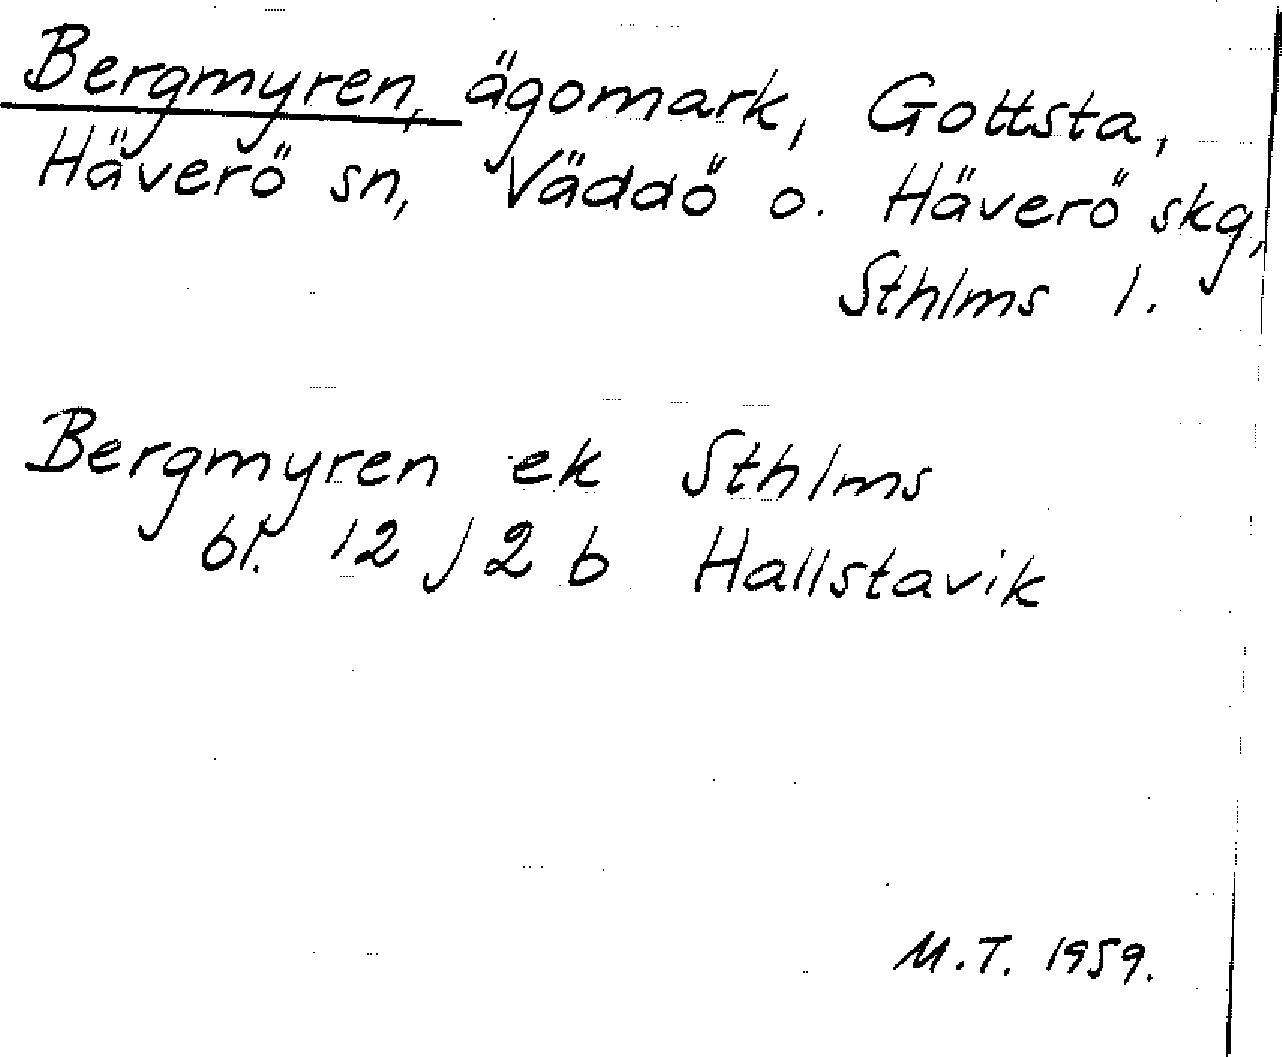 Bergmyren, ägomark, Gottsta,
Häverö sn, Väddö o. Häverö skg,
Sthlms l.
Bergmyren ek Sthlms
bl. 12 J 2 b Hallstavik
M.T. 1959.